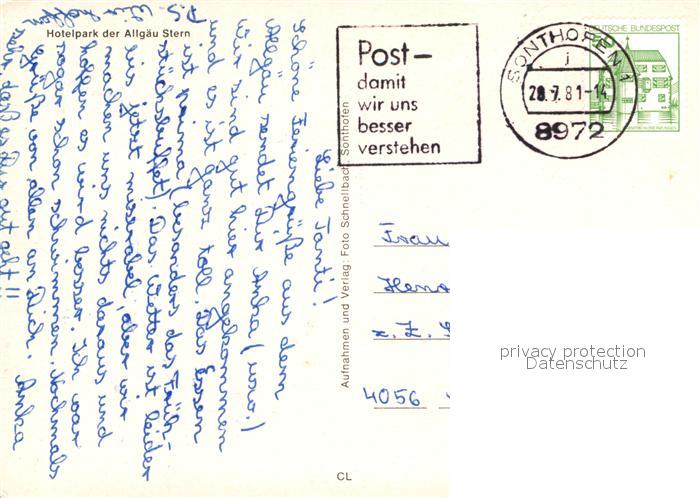 Hotelpark der Allgäu Stern
Liebe Tanti!
Schöne Feriengrüße aus dem
Allgäu sendet Dir Anka (wir.)
Wir sind gut hier angekommen
und es ist ganz toll. Das Essen
ist prima, (besonders das Früh-
stücksbuffet). Das Wetter ist leider
bis jetzt miserabel, aber wir
machen uns nichts daraus und
hoffen es wird besser. Ich war
sogar schon schwimmen. Nochmals
Grüße von allen an Dich. Anka
P.S. Wir hoffen
sehr, daß es Dir gut geht!!
Aufnahmen und Verlag: Foto Schnellbach, Sonthofen
Post—
damit
wir uns
besser
verstehen
SONTHOFEN 1
j
28.7.81-14
8972
DEUTSCHE BUNDESPOST
Frau
Hens
z. Z.
4056
privacy protection
Datenschutz
CL